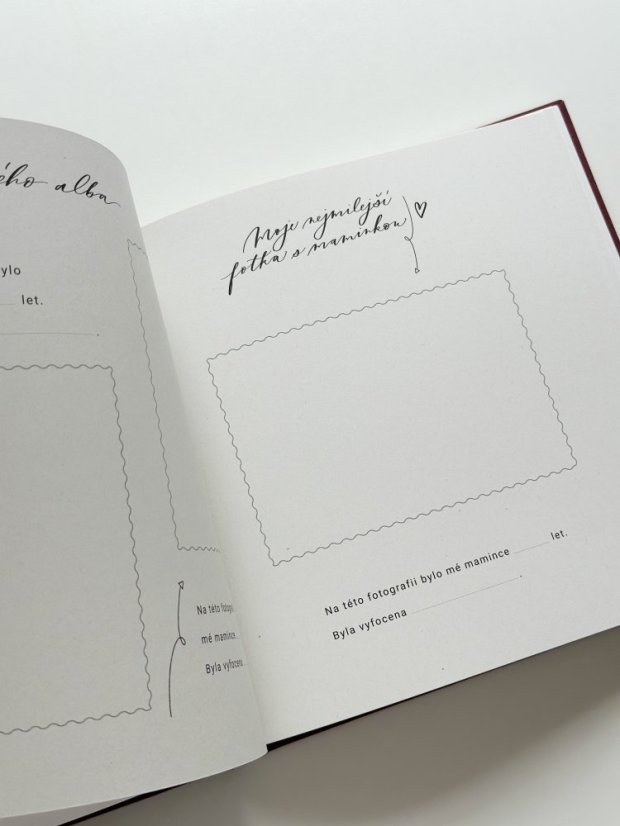 ého alba
ylo
let.
Na této fotogra
mé mamince
Byla vyfocena
Moje nejmilejší
fotka s maminkou
Na této fotografii bylo mé mamince ______ let.
Byla vyfocena ____________.